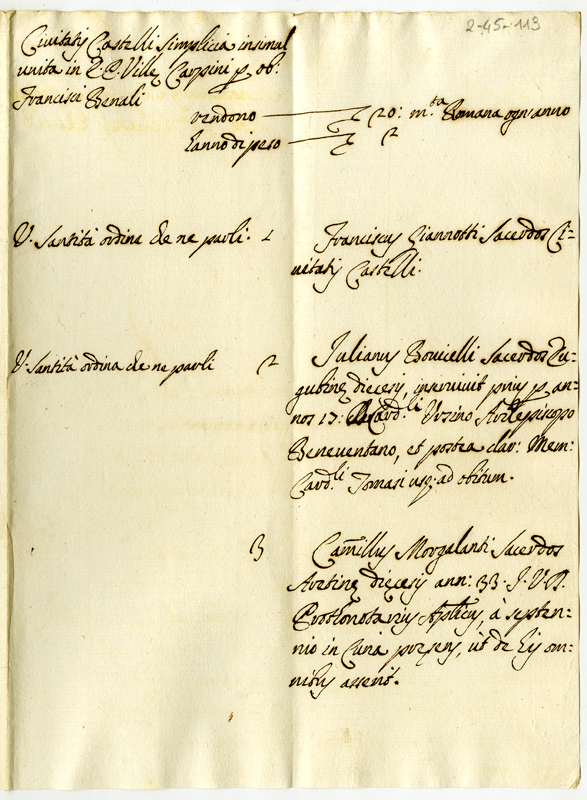 2-45-113
Civitatis Castelli simplicia insimul
unita in E. P. Ville Carpini p ob.
Francisci Benali
vendono 20: m.ta Romana ogn'anno
hanno di peso 2
V. Santità ordina che ne parli. 1
Franciscus Giannotti Sacerdos Ci-
vitatis Castelli.
V. Santità ordina che ne parli 2
Julianus Bovicelli Sacerdos Eu-
gubine diecesis, inservivit prius p an-
nos 17. Card.li Ursino Archiepiscopo
Beneventano, et postea clar: Mem:
Card.li Tomasi usq. ad obitum.
3
Camillus Morgalanti Sacerdos
Aretine diecesis ann: 33. J. V. D.
Protonotarius Aplicus, à septen-
nio in Curia presens, ut de his om-
nibus asserit.